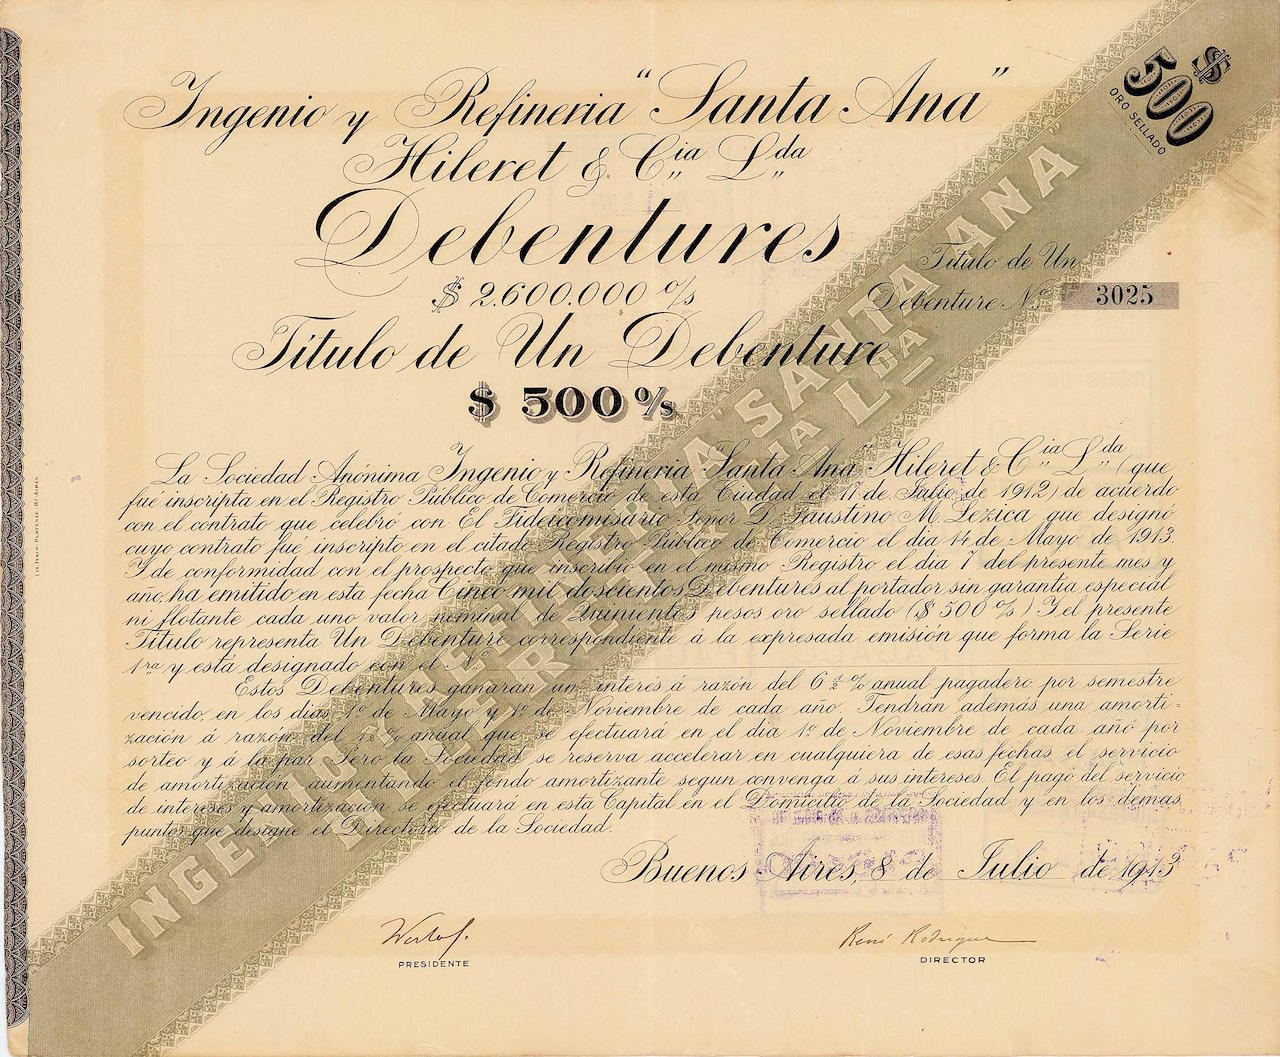 Ingenio y Refineria "Santa Ana"
Hileret & Cia Lda
Debentures
$ 2.600.000 o/s
Titulo de Un Debenture
$ 500 o/s
$ 500
ORO SELLADO
Titulo de Un
Debenture No 3025
La Sociedad Anónima Ingenio y Refineria Santa Ana Hileret & Cia Lda (que
fué inscripta en el Registro Público de Comercio de esta Ciudad el 17 de Julio de 1912) de acuerdo
con el contrato que celebró con El Fideicomisario Señor D. Faustino M. Lezica que designó
cuyo contrato fué inscripto en el citado Registro Público de Comercio el dia 14 de Mayo de 1913.
Y de conformidad con el prospecto que inscribió en el mismo Registro el dia 7 del presente mes y
año, ha emitido en esta fecha Cinco mil doscientos Debentures al portador sin garantia especial
ni flotante cada uno valor nominal de Quinientos pesos oro sellado ($ 500 o/s) Y el presente
Titulo representa Un Debenture correspondiente á la expresada emisión que forma la Serie
1ra y está designado con el No
Estos Debentures ganarán un interés á razón del 6 1/2 % anual pagadero por semestre
vencido, en los dias 1o de Mayo y 1o de Noviembre de cada año. Tendrán además una amorti-
zación á razón del % anual que se efectuará en el dia 1o de Noviembre de cada año por
sorteo y á la par Pero la Sociedad se reserva accelerar en cualquiera de esas fechas el servicio
de amortización aumentando el fondo amortizante segun convenga á sus intereses. El pago del servicio
de intereses y amortización se efectuará en esta Capital en el Domicilio de la Sociedad y en los demas
puntos que designe el Directorio de la Sociedad.
Buenos Aires, 8 de Julio de 1913
PRESIDENTE
René Rodrigue
DIRECTOR
INGENIO Y REFINERIA SANTA ANA
HILERET & CIA LDA
LIT. ITALO-PLATENSE-Bs AIRES